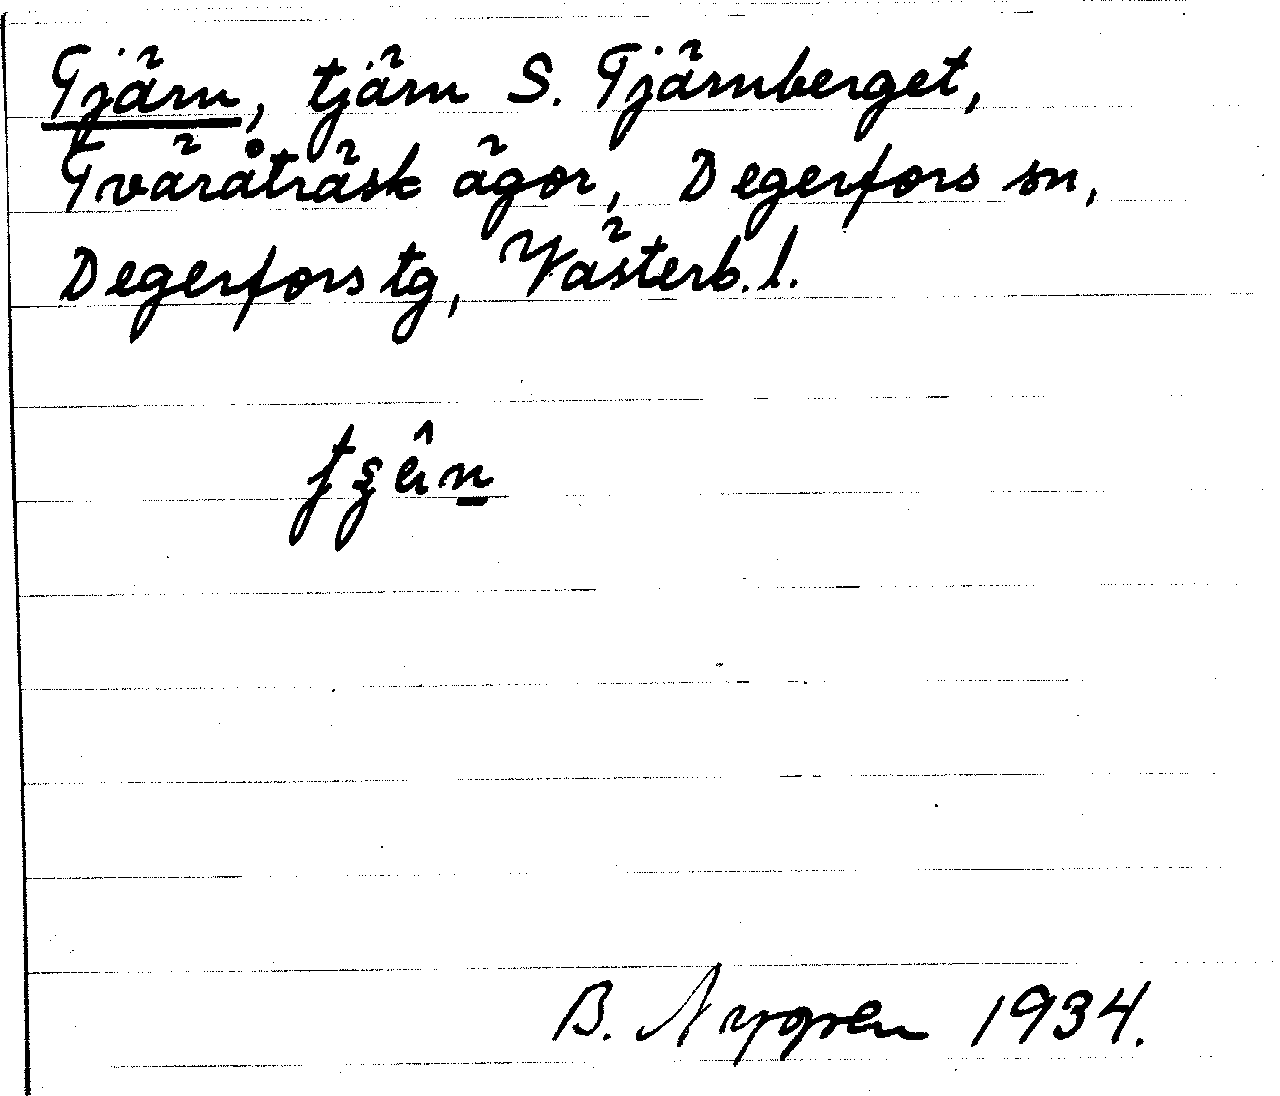 Tjärn, tjärn S. Tjärnberget,
Tväråträsk ägor, Degerfors sn,
Degerfors tg, Västerb.l.
B. Nygren 1934.